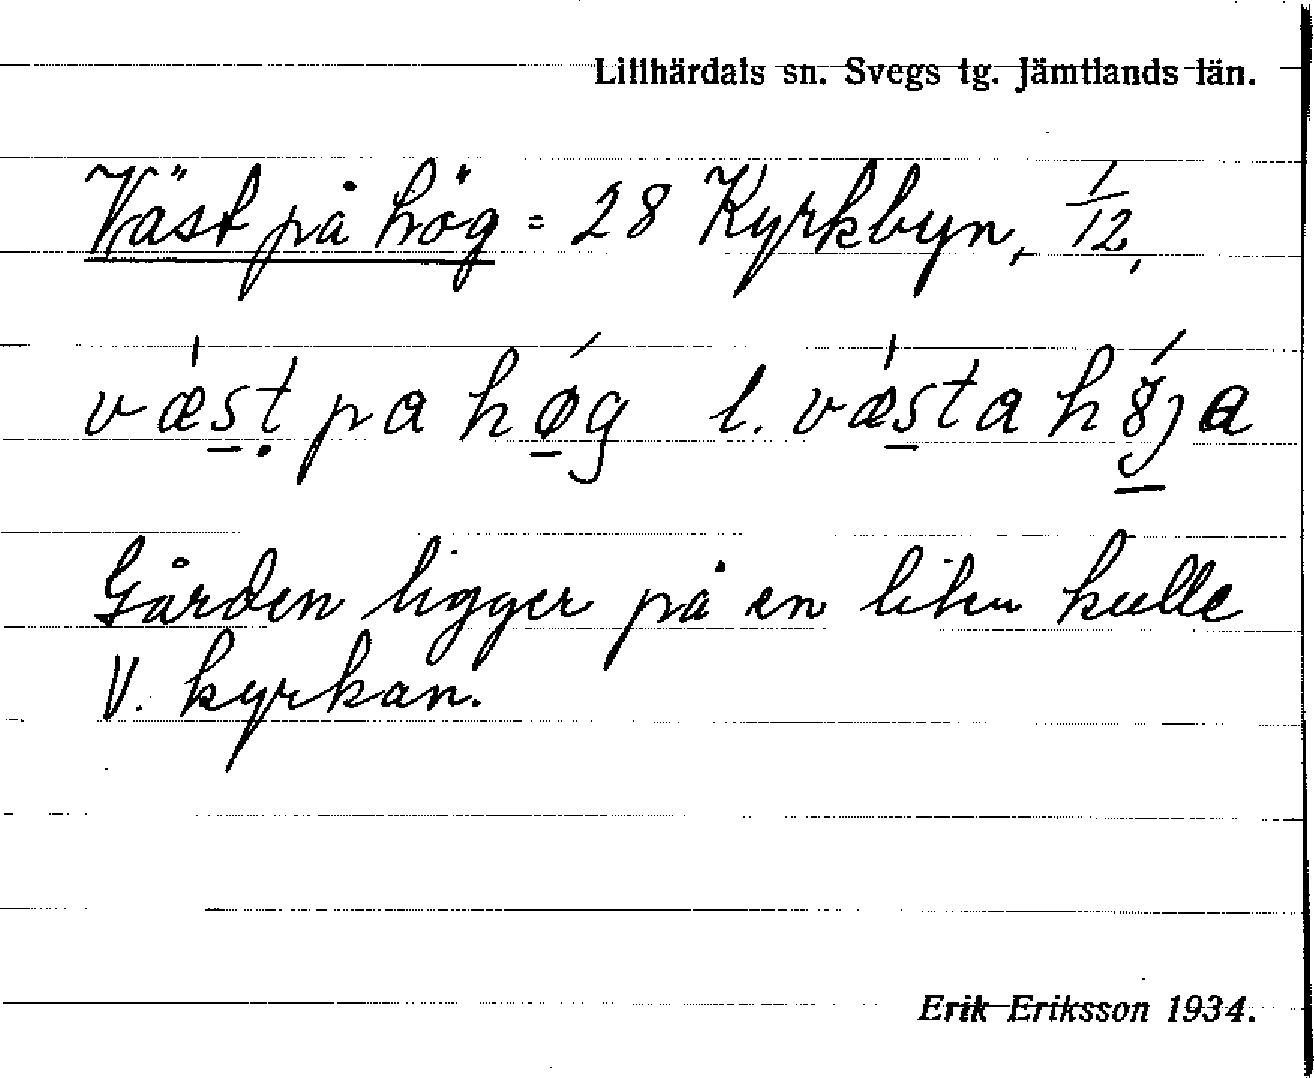 Lillhärdals sn. Svegs tg. Jämtlands län.
Väst på hög = 28 Kyrkbyn, 1/12,
væ̍s̲ṭ pa hǿ̲g l. væ̍s̲ta hȣ̲́ȷa
Gården ligger på en liten kulle
V. kyrkan.
Erik Eriksson 1934.